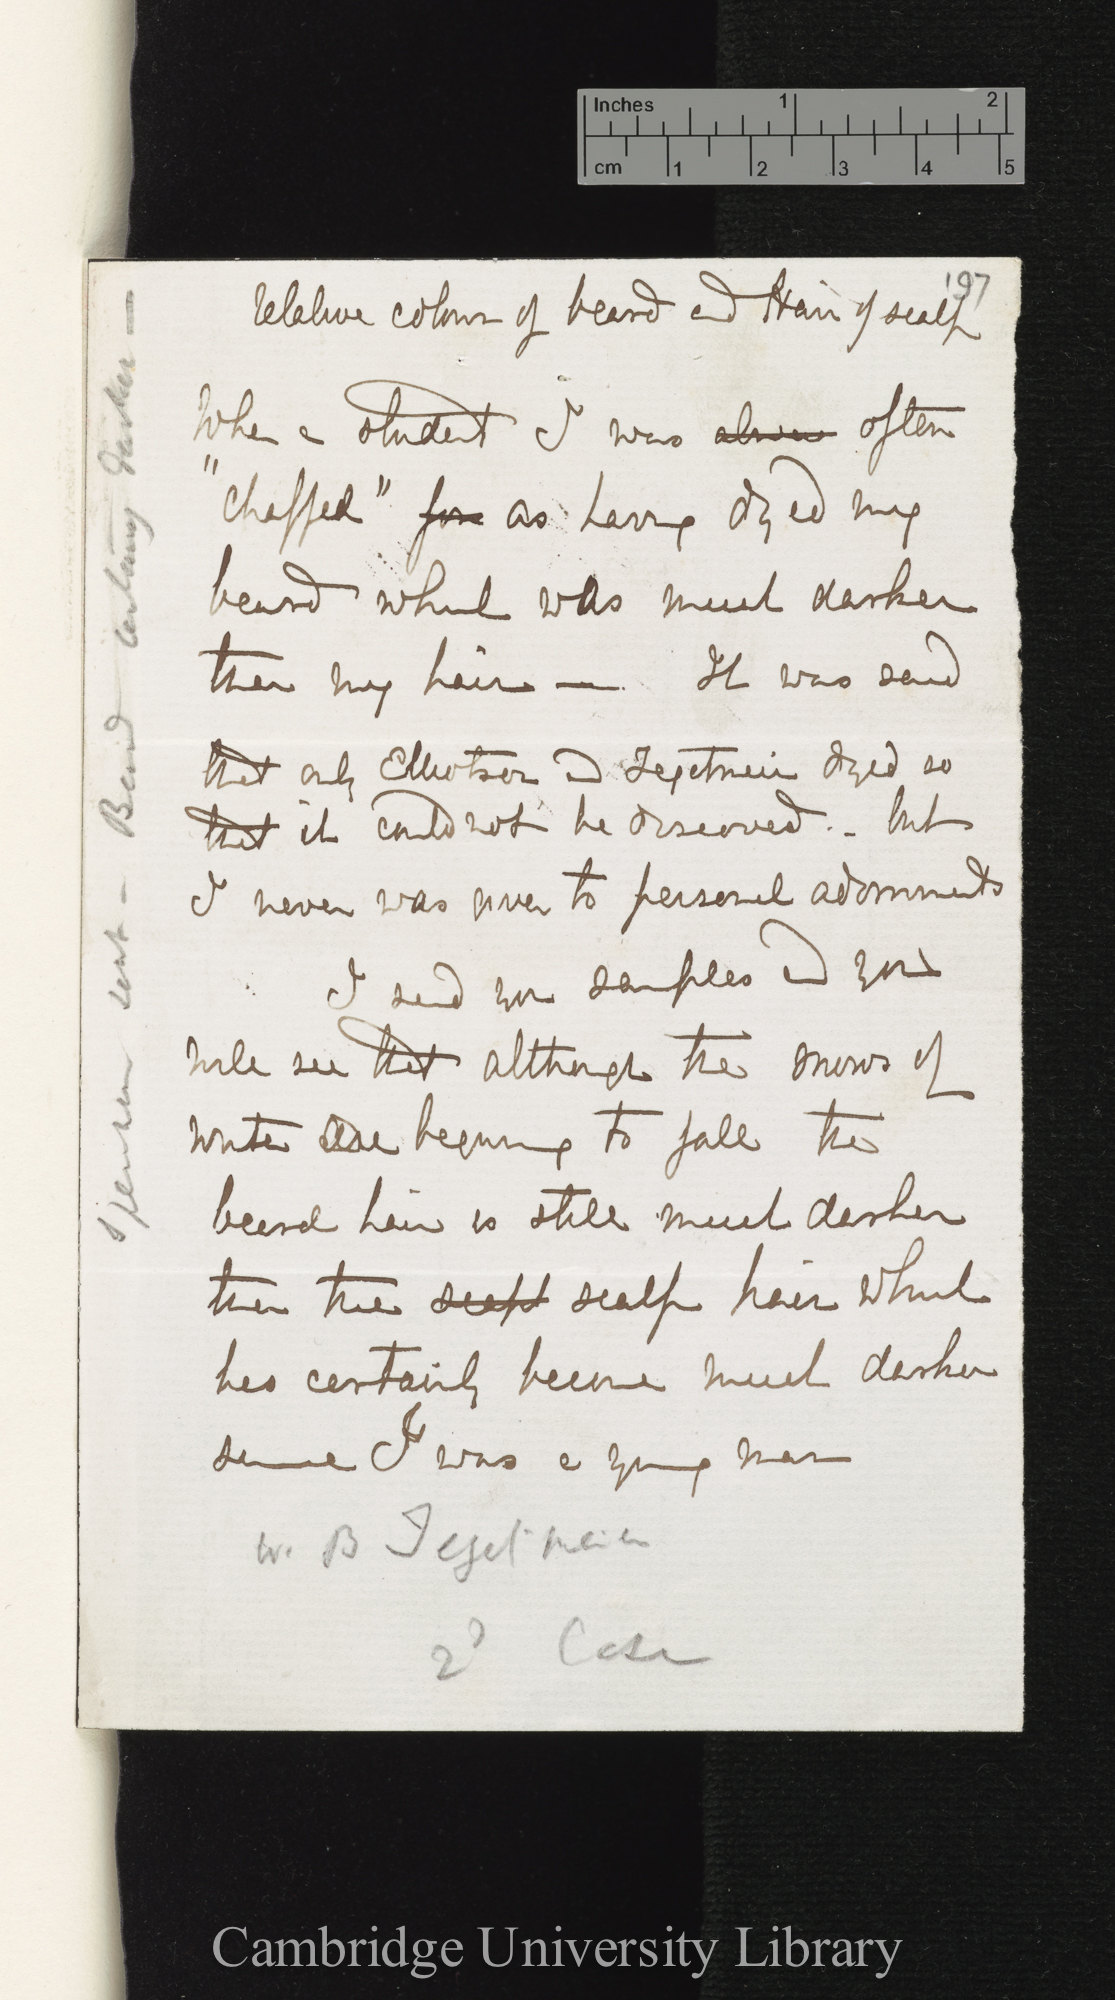 Inches 1 2
cm 1 2 3 4 5
197
Relative colour of beard and Hair of scalp
When a student I was often
"chaffed" for as having dyed my
beard which was much darker
than my hair — It was said
that only Elliotson and Tegetmeier dyed so
that it could not be discovered. – but
I never was given to personal adornments
I send you samples and you
will see that although the snows of
winter are beginning to fall the
beard hair is still much darker
than the scalp scalp hair which
has certainly become much darker
since I was a young man
W. B Tegetmeier
2d Case
Specimen sent – Beard certainly darker —
Cambridge University Library